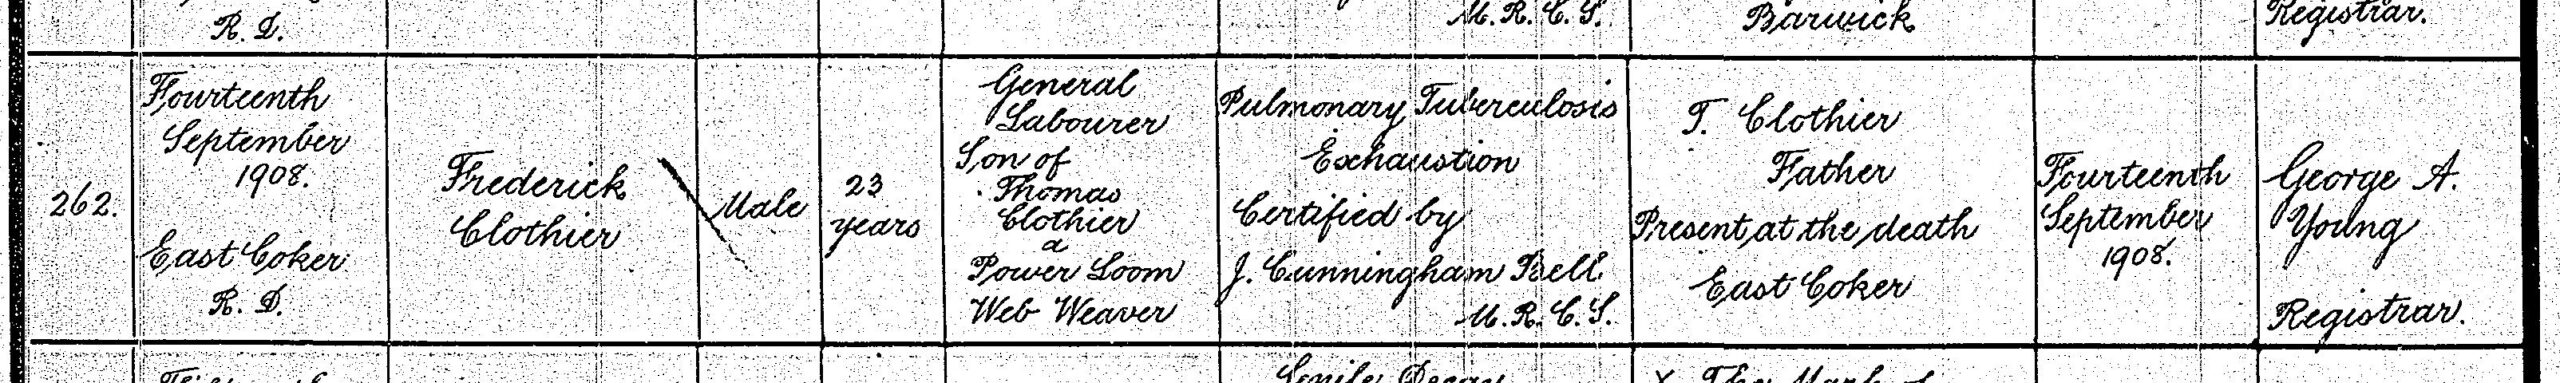 R. D.
M. R. C. S.
Barwick
Registrar.
262.
Fourteenth
September
1908.
East Coker
R. D.
Frederick
Clothier
Male
23
years
General
Labourer
Son of
Thomas
Clothier
a
Power Loom
Web Weaver
Pulmonary Tuberculosis
Exhaustion
Certified by
J. Cunningham Bell
M. R. C. S.
T. Clothier
Father
Present at the death
East Coker
Fourteenth
September
1908.
George A.
Young
Registrar.
Senile Decay
X The Mark of